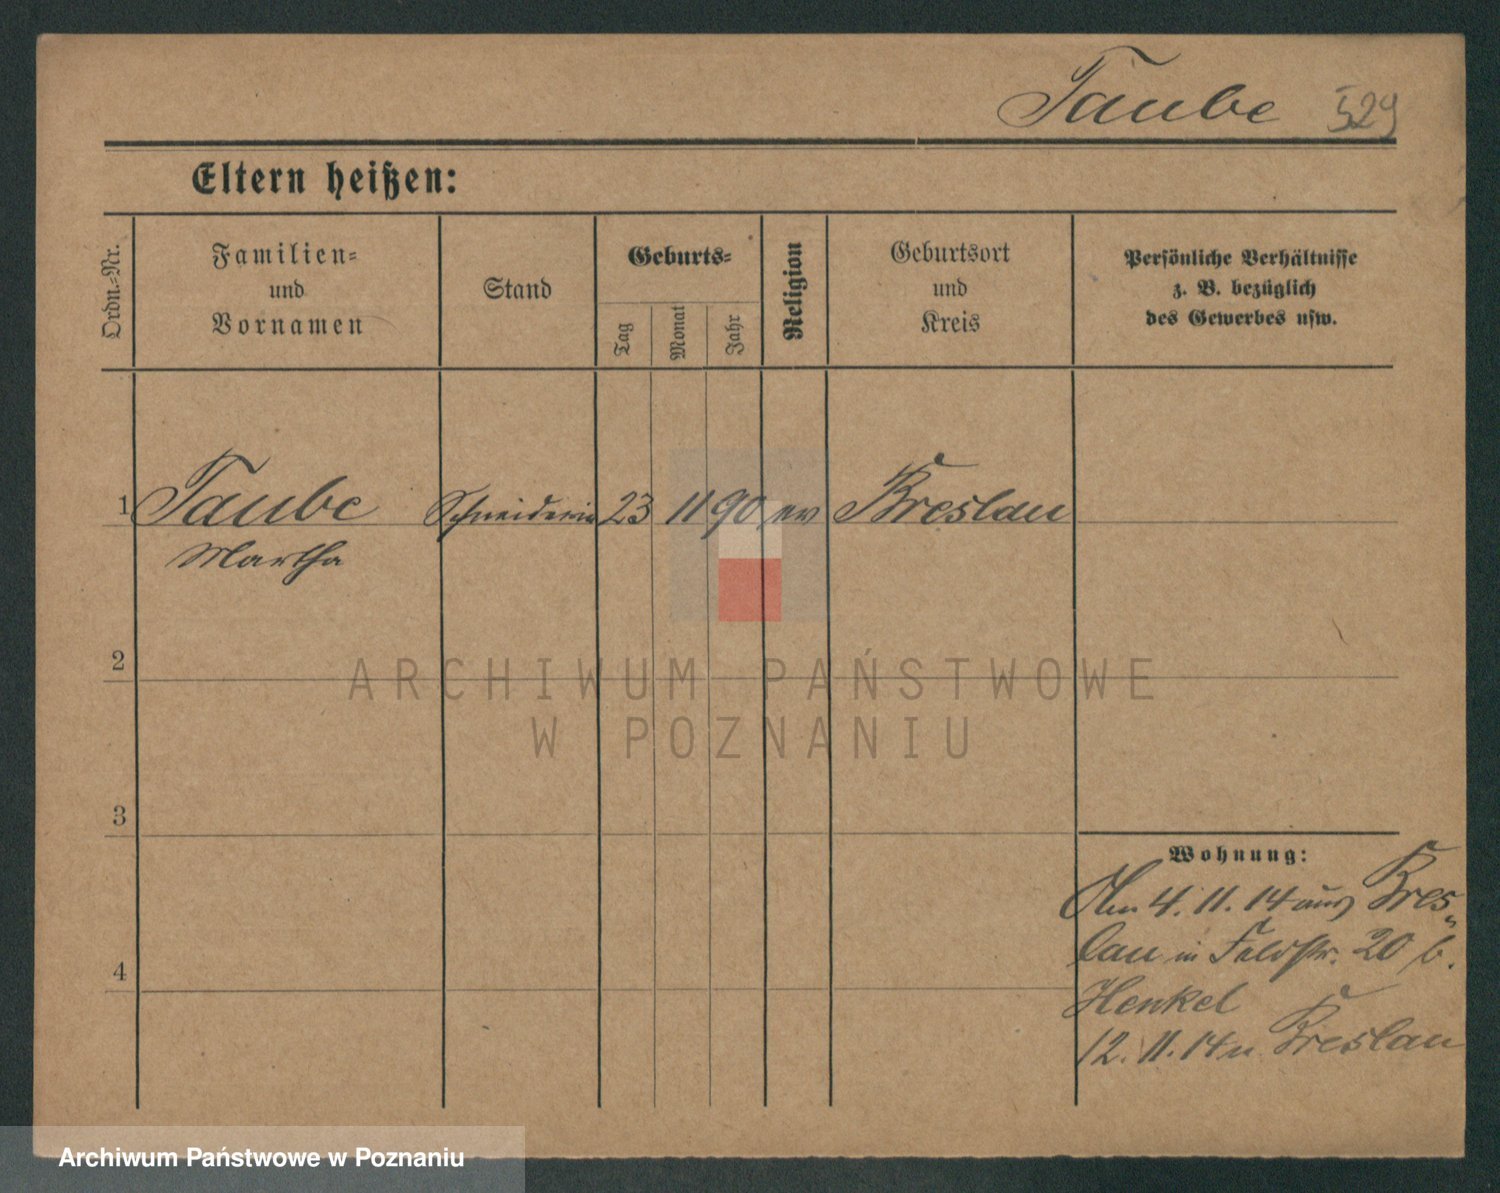 Taube 529
Eltern heißen:
Ordn.-Nr.
Familien-
und
Vornamen
Stand
Geburts-
Tag
Monat
Jahr
Religion
Geburtsort
und
Kreis
Persönliche Verhältnisse
z. B. bezüglich
des Gewerbes usw.
1 Taube Schneiderin 23 11 90 ev Breslau
Martha
2
ARCHIWUM PAŃSTWOWE
W POZNANIU
3
Wohnung:
Am 4. 11. 14 aus Bres-
lau in Feldstr. 20 b.
Henkel
4
12. 11. 14 n. Breslau
Archiwum Państwowe w Poznaniu